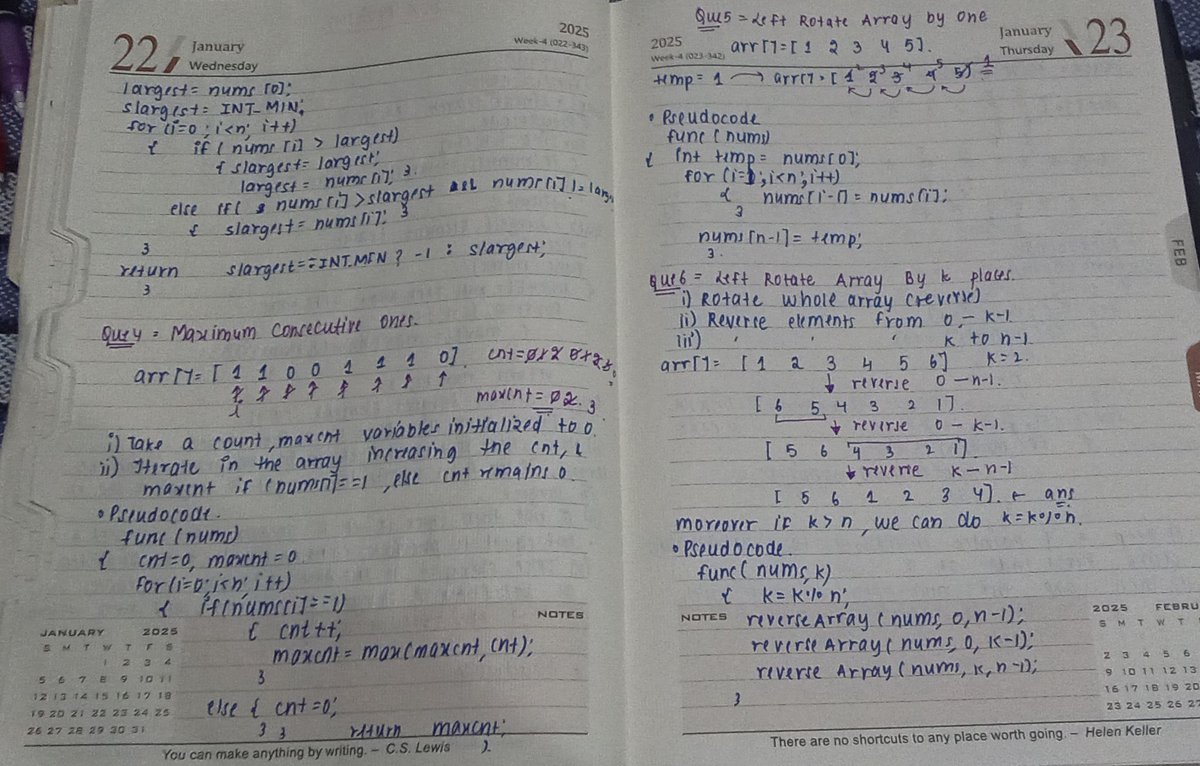 22 January
Wednesday
2025
Week-4 (022-343)
largest = nums [0];
slargest = INT_MIN;
for (i=0 ; i<n; i++)
{ if ( nums [i] > largest)
{ slargest = largest;
largest = nums[i]; }
else if( nums [i] > slargest && nums[i] != larg
{ slargest = nums[i]; }
}
return slargest == INT_MIN ? -1 : slargest;
}
Que 4 = Maximum Consecutive Ones.
arr[] = [ 1 1 0 0 1 1 1 0].
maxcnt = 0 2 3
i) Take a count, maxcnt variables initialized to 0.
ii) Iterate in the array increasing the cnt, &
maxcnt if (nums[i] == 1 , else cnt remains 0.
• Pseudocode.
func (nums)
{ cnt=0, maxcnt = 0
for (i=0; i<n; i++)
{ if (nums[i] == 1)
{ cnt++;
maxcnt = max(maxcnt, cnt);
}
else { cnt=0;
} } return maxcnt;
}
NOTES
JANUARY 2025
S M T W T F S
1 2 3 4
5 6 7 8 9 10 11
12 13 14 15 16 17 18
19 20 21 22 23 24 25
26 27 28 29 30 31
You can make anything by writing. – C.S. Lewis
Que 5 = Left Rotate Array by one
2025
Week-4 (023-342)
January
Thursday 23
arr[] = [ 1 2 3 4 5].
temp = 1 → arr[] = [ 1 2 2 3 3 4 4 5 5] 1
• Pseudocode
func ( nums)
{ int temp = nums[0];
for (i=1; i<n; i++)
{ nums[i-1] = nums[i];
}
nums[n-1] = temp;
}
Que 6 = Left Rotate Array By k places.
i) Rotate whole array (reverse)
ii) Reverse elements from 0, - k-1.
iii) " " " k to n-1.
arr[] = [ 1 2 3 4 5 6] k = 2.
↓ reverse 0 – n-1.
[ 6 5 4 3 2 1].
↓ reverse 0 - k-1.
[ 5 6 4 3 2 1]
↓ reverse k – n-1
[ 5 6 1 2 3 4]. ← ans
moreover if k > n, we can do k = k % n.
• Pseudocode.
func( nums, k)
{ k = k % n;
NOTES
reverseArray ( nums, 0, n-1);
reverseArray ( nums, 0, k-1);
reverse Array ( nums, k, n-1);
}
2025 FEBRU
S M T W T
2 3 4 5 6
9 10 11 12 13
16 17 18 19 20
23 24 25 26 27
There are no shortcuts to any place worth going. – Helen Keller
FEB